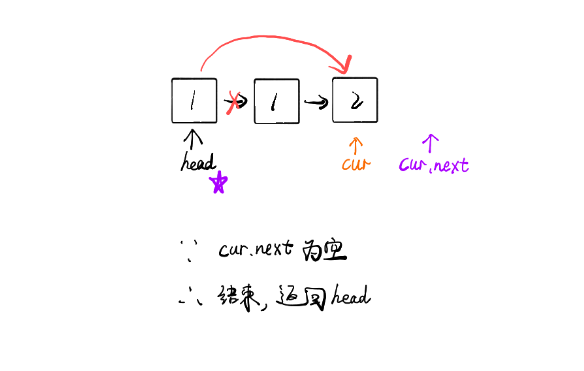 1 1 2
head cur cur.next
∵ cur.next为空
∴ 结束,返回head